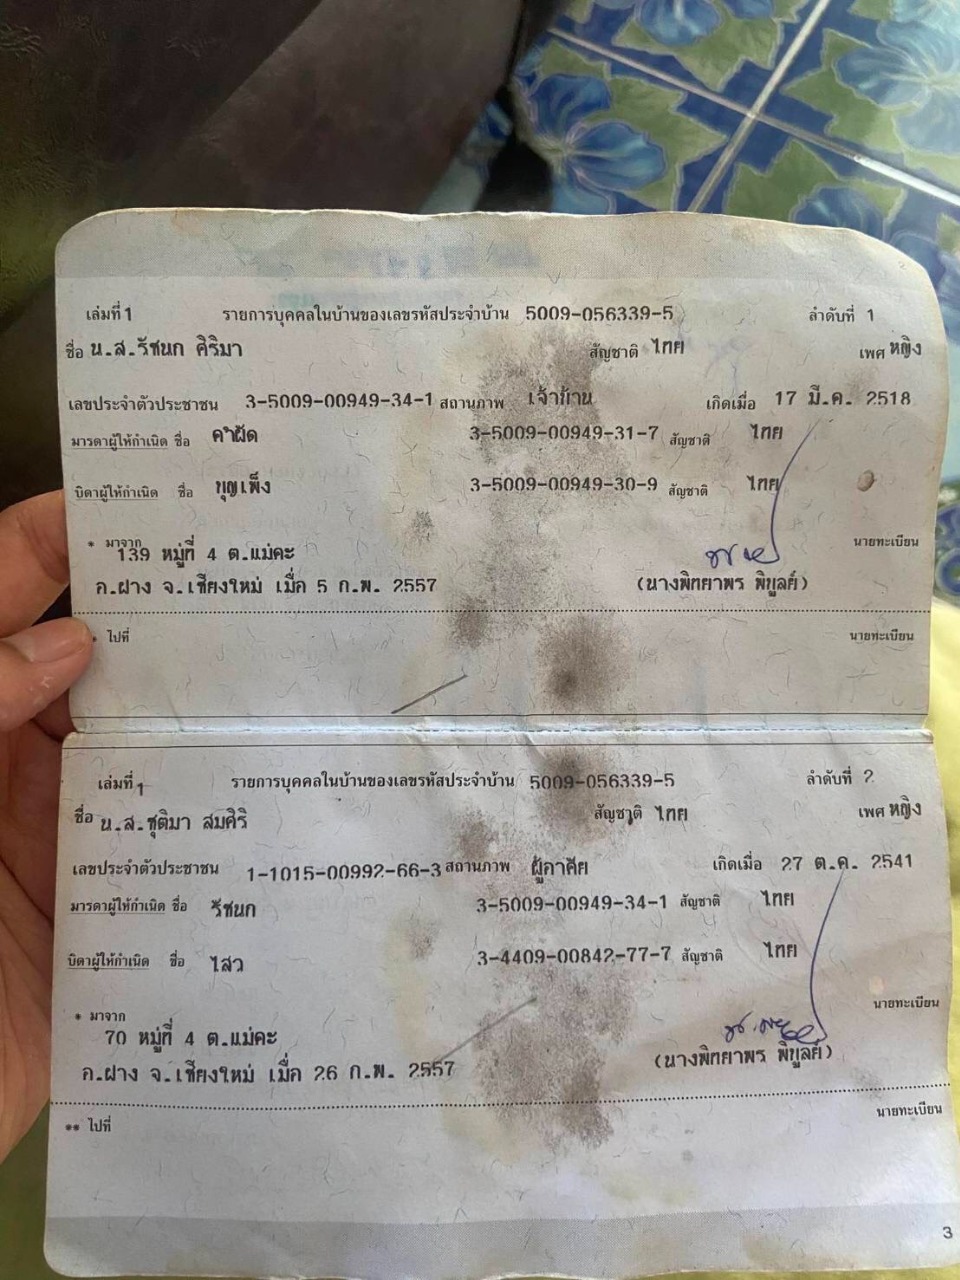 เล่มที่ 1 รายการบุคคลในบ้านของเลขรหัสประจำบ้าน 5009-056339-5 ลำดับที่ 1
ชื่อ น.ส.รัชนก คิริมา สัญชาติ ไทย เพศ หญิง
เลขประจำตัวประชาชน 3-5009-00949-34-1 สถานภาพ เจ้าบ้าน เกิดเมื่อ 17 มี.ค. 2518
มารดาผู้ให้กำเนิด ชื่อ คำผัด 3-5009-00949-31-7 สัญชาติ ไทย
บิดาผู้ให้กำเนิด ชื่อ บุญเพ็ง 3-5009-00949-30-9 สัญชาติ ไทย
* มาจาก
139 หมู่ที่ 4 ต.แม่คะ นายทะเบียน
อ.ฝาง จ.เชียงใหม่ เมื่อ 5 ก.พ. 2557 (นางพิทยาพร พิบูลย์)
* ไปที่ นายทะเบียน
เล่มที่ 1 รายการบุคคลในบ้านของเลขรหัสประจำบ้าน 5009-056339-5 ลำดับที่ 2
ชื่อ น.ส.ชุติมา สมศิริ สัญชาติ ไทย เพศ หญิง
เลขประจำตัวประชาชน 1-1015-00992-66-3 สถานภาพ ผู้อาศัย เกิดเมื่อ 27 ต.ค. 2541
มารดาผู้ให้กำเนิด ชื่อ รัชนก 3-5009-00949-34-1 สัญชาติ ไทย
บิดาผู้ให้กำเนิด ชื่อ ไสว 3-4409-00842-77-7 สัญชาติ ไทย
* มาจาก นายทะเบียน
70 หมู่ที่ 4 ต.แม่คะ
อ.ฝาง จ.เชียงใหม่ เมื่อ 26 ก.พ. 2557 (นางพิทยาพร พิบูลย์)
** ไปที่ นายทะเบียน
3